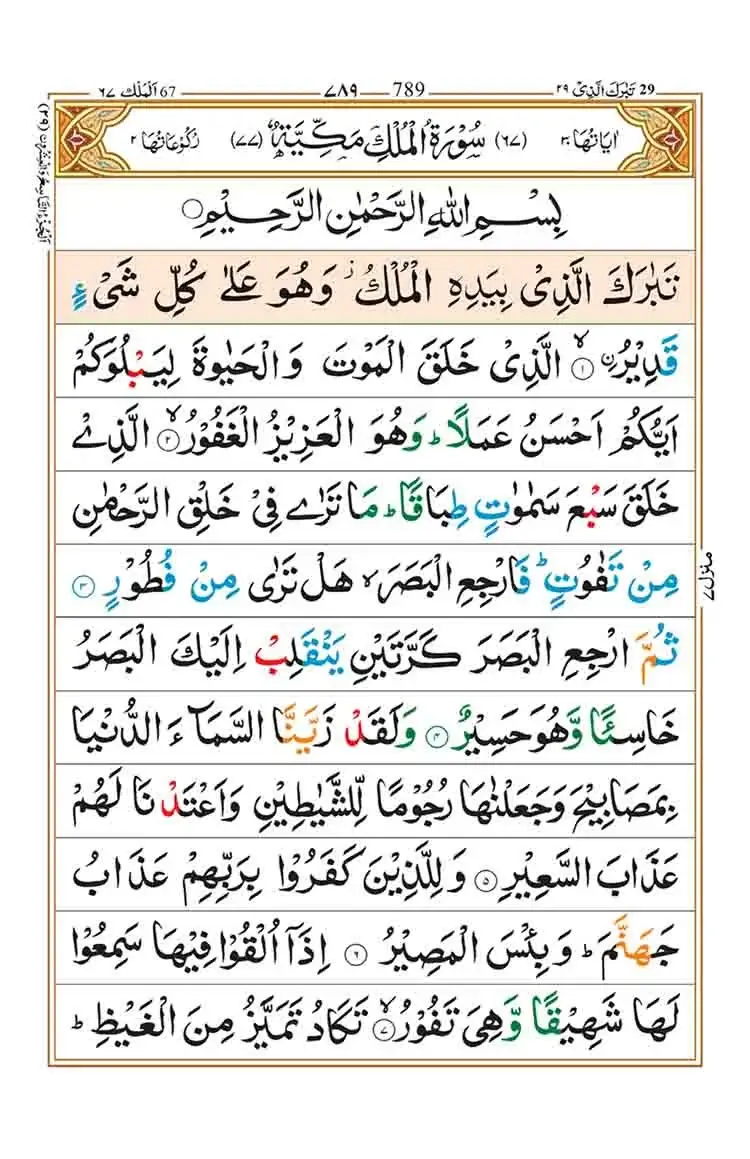 29 تَبٰرَكَ الَّذِیْ ٢٩ 789 — ٧٨٩ اَلْمُلْك 67 ٦٧
اٰيَاتُهَا ٣٠ (٦٧) سُوْرَةُ الْمُلْكِ مَكِّيَّةٌ (٧٧) رُكُوْعَاتُهَا ٢
بِسْمِ اللّٰهِ الرَّحْمٰنِ الرَّحِيْمِ
تَبٰرَكَ الَّذِیْ بِيَدِهِ الْمُلْكُ ز وَهُوَ عَلٰى كُلِّ شَیْءٍ
قَدِيْرُ ۨ ۙ ١ الَّذِیْ خَلَقَ الْمَوْتَ وَالْحَيٰوةَ لِيَبْلُوَكُمْ
اَيُّكُمْ اَحْسَنُ عَمَلًا ؕ وَهُوَ الْعَزِيْزُ الْغَفُوْرُ ۙ ٢ الَّذِیْ
خَلَقَ سَبْعَ سَمٰوٰتٍ طِبَاقًا ؕ مَا تَرٰى فِیْ خَلْقِ الرَّحْمٰنِ
مِنْ تَفٰوُتٍ ؕ فَارْجِعِ الْبَصَرَ ۙ هَلْ تَرٰى مِنْ فُطُوْرٍ ٣
ثُمَّ ارْجِعِ الْبَصَرَ كَرَّتَيْنِ يَنْقَلِبْ اِلَيْكَ الْبَصَرُ
خَاسِئًا وَّهُوَ حَسِيْرٌ ٤ وَلَقَدْ زَيَّنَّا السَّمَآءَ الدُّنْيَا
بِمَصَابِيْحَ وَجَعَلْنٰهَا رُجُوْمًا لِّلشَّيٰطِيْنِ وَاَعْتَدْنَا لَهُمْ
عَذَابَ السَّعِيْرِ ٥ وَلِلَّذِيْنَ كَفَرُوْا بِرَبِّهِمْ عَذَابُ
جَهَنَّمَ ؕ وَبِئْسَ الْمَصِيْرُ ٦ اِذَآ اُلْقُوْا فِيْهَا سَمِعُوْا
لَهَا شَهِيْقًا وَّهِیَ تَفُوْرُ ۙ ٧ تَكَادُ تَمَيَّزُ مِنَ الْغَيْظِ ؕ
اَلْجُزْءُ التَّاسِعُ وَالْعِشْرُوْنَ (٢٩)
منزل ٧